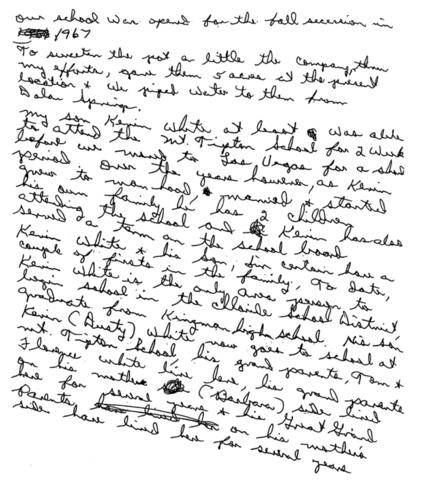 our school was opend for the fall secession in
1967
To sweeten the pot a little the company, thru
my efforts, gave them 5 acres at the present
location & we piped water to them from
Dolan Springs.
my son Kevin White at least was able
to attend the Mt. Tipton School for 2 week
before we moved to Las Vegas for a short
period. Over the years however, as Kevin
grew to manhood, married & started
his own family, he has 2 children
attending the school and Kevin has also
served a term on the school board
Kevin White & his son, I'm certain have a
couple of firsts in the family, To date,
Kevin White is the only area person to
begin school in the Chloride School District,
graduate from Kingman high school. His son
Kevin (Dusty) White now goes to school at
Mt Tipton School his grand parents, Tom &
Florence White live here, his grand parents
on his mothers (Barbara) side lived
here for several years & his Great Grand
Parents on his mother's
side have lived here for several years